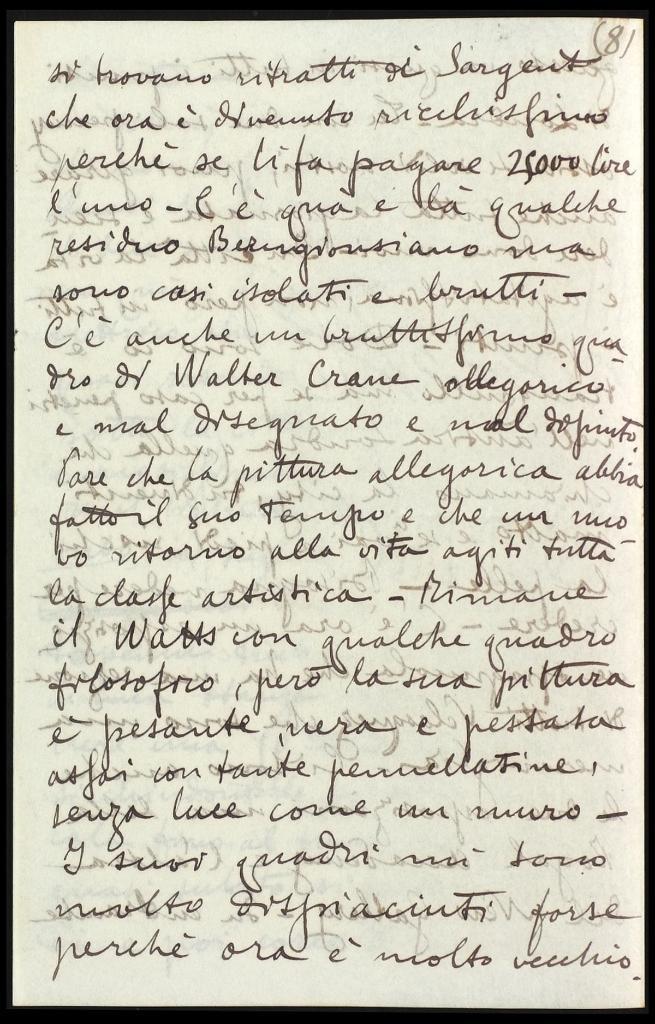 (8)
si trovano ritratti di Sargent
che ora è divenuto ricchissimo
perchè se li fa pagare 25,000 lire
l'uno – C'è quà e là qualche
residuo Burnejonsiano ma
sono casi isolati e brutti –
C'è anche un bruttissimo qua
dro di Walter Crane allegorico
e mal disegnato e mal dipinto.
Pare che la pittura allegorica abbia
fatto il suo tempo e che un nuo
vo ritorno alla vita agiti tutta
la classe artistica – Rimane
il Watts con qualche quadro
filosofico, però la sua pittura
è pesante, nera e pestata
assai con tante pennellatine,
senza luce come un muro –
I suoi quadri mi sono
molto dispiaciuti forse
perchè ora è molto vecchio.